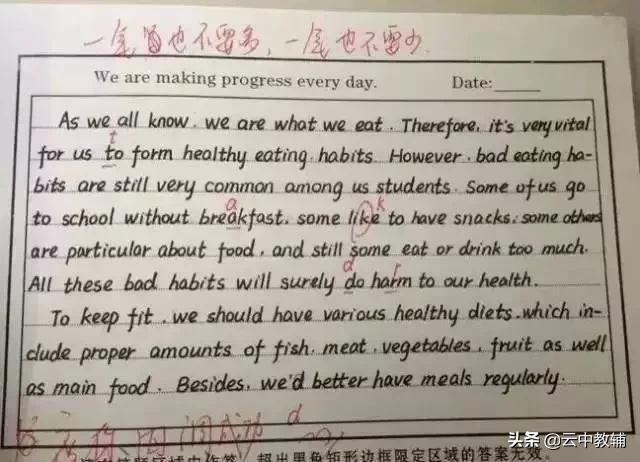 一尾也不要多,一尾也不要少.
We are making progress every day. Date:
As we all know, we are what we eat. Therefore, it's very vital
for us to form healthy eating habits. However, bad eating ha-
bits are still very common among us students. Some of us go
to school without breakfast, some like to have snacks, some others
are particular about food, and still some eat or drink too much.
All these bad habits will surely do harm to our health.
To keep fit, we should have various healthy diets, which in-
clude proper amounts of fish, meat, vegetables, fruit as well
as main food. Besides, we'd better have meals regularly.
t
a
k
d
r
成功
d
超出黑色矩形边框限定区域的答案无效。
头条@云中教辅